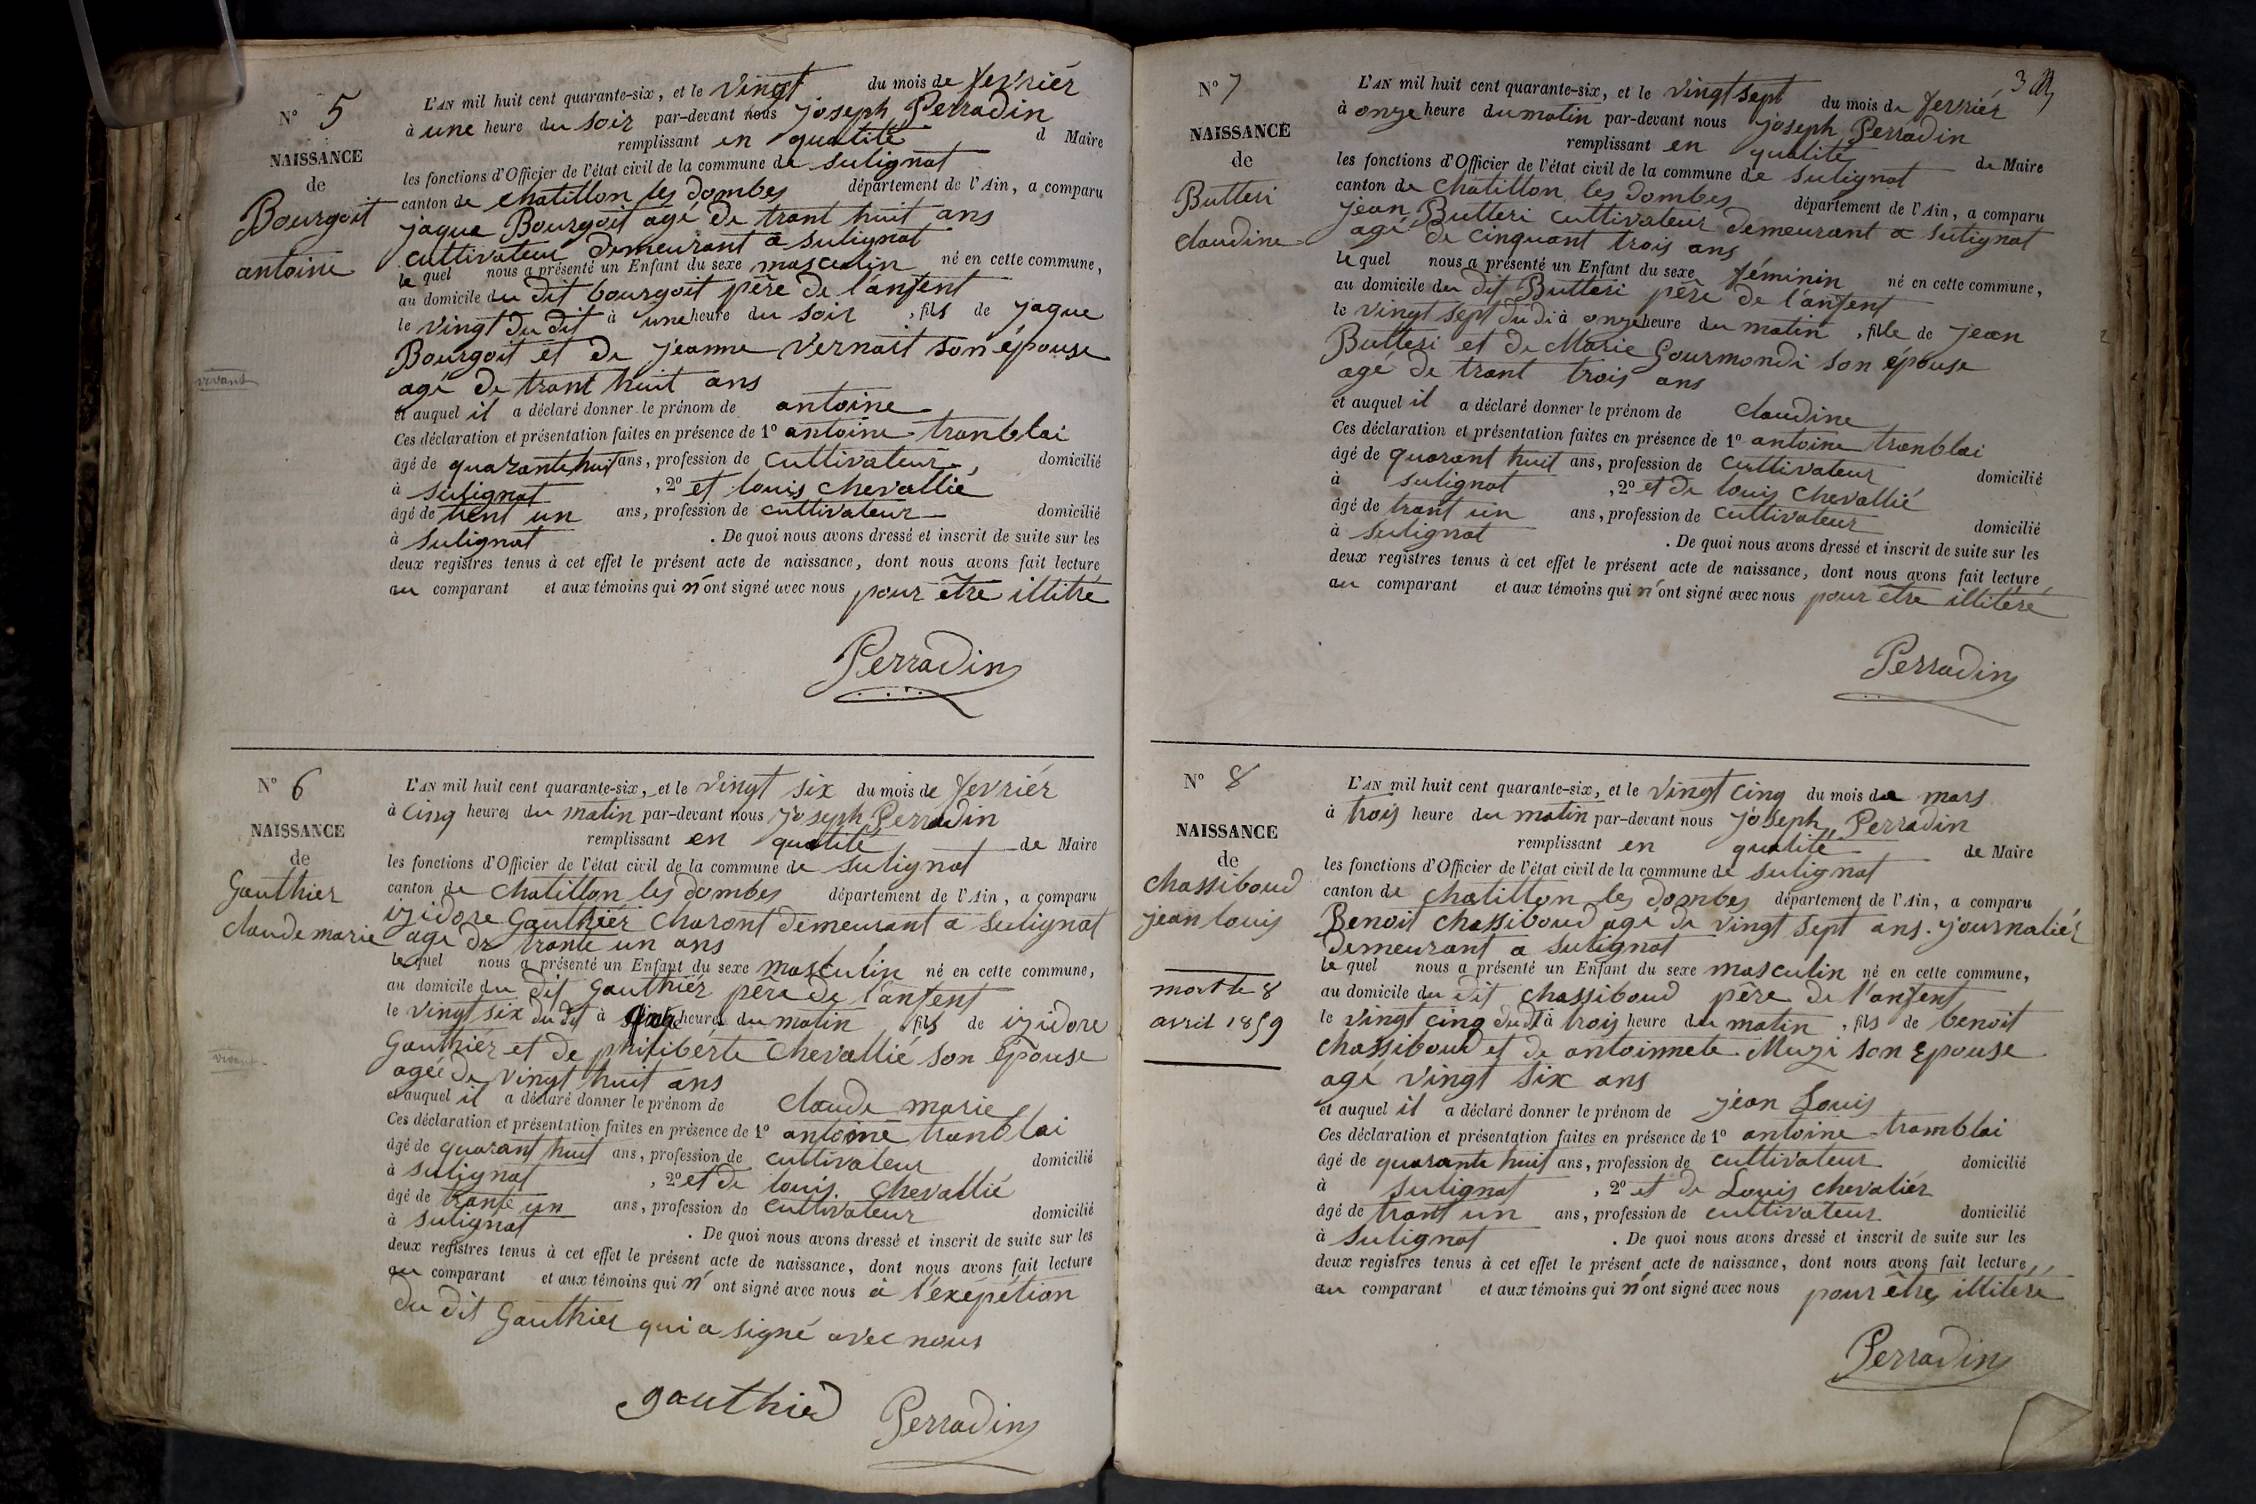 N° 5
NAISSANCE
de
Bourgoit
antoine
vivant
L'AN mil huit cent quarante-six, et le vingt du mois de fevriér
à une heure du soir par-devant nous joseph Perradin
remplissant en qualité d Maire
les fonctions d'Officier de l'état civil de la commune de sulignat
canton de chatillon les dombes département de l'Ain, a comparu
jaque Bourgoit agé de trant huit ans
cultivateur demeurant a sulignat
le quel nous a présenté un Enfant du sexe masculin né en cette commune,
au domicile du dit bourgoit père de l'anfent
le vingt du dit à une heure du soir, fils de jaque
Bourgoit et de jeanne vernait son épouse
agé de trant huit ans
et auquel il a déclaré donner le prénom de antoine
Ces déclaration et présentation faites en présence de 1° antoine tranblai
âgé de quarante huit ans, profession de cultivateur, domicilié
à sulignat, 2° et louis chevallié
âgé de trent un ans, profession de cultivateur domicilié
à sulignat. De quoi nous avons dressé et inscrit de suite sur les
deux registres tenus à cet effet le présent acte de naissance, dont nous avons fait lecture
au comparant et aux témoins qui n'ont signé avec nous pour être illitré
Perradin
N° 6
NAISSANCE
de
Gauthier
claude marie
vivant
L'AN mil huit cent quarante-six, et le vingt six du mois de fevriér
à cinq heures du matin par-devant nous joseph Perradin
remplissant en qualité de Maire
les fonctions d'Officier de l'état civil de la commune de sulignat
canton de chatillon les dombes département de l'Ain, a comparu
izidore Gauthiér charont demeurant a sulignat
agé de trante un ans
le quel nous a présenté un Enfant du sexe masculin né en cette commune,
au domicile du dit Gauthiér père de l'anfent
le vingt six du dit à cinq heures du matin, fils de izidore
Gauthiér et de philiberte chevallié son épouse
agée de vingt huit ans
et auquel il a déclaré donner le prénom de claude marie
Ces déclaration et présentation faites en présence de 1° antoine tranblai
âgé de quarant huit ans, profession de cultivateur domicilié
à sulignat, 2° et de louis chevallié
âgé de trante un ans, profession de cultivateur domicilié
à sulignat. De quoi nous avons dressé et inscrit de suite sur les
deux registres tenus à cet effet le présent acte de naissance, dont nous avons fait lecture
au comparant et aux témoins qui n'ont signé avec nous a l'exépétion
du dit Gauthier qui a signé avec nous
gauthier Perradin
3
N° 7
NAISSANCE
de
Butteri
claudine
L'AN mil huit cent quarante-six, et le vingt sept du mois de fevriér
à onze heure du matin par-devant nous joseph Perradin
remplissant en qualité de Maire
les fonctions d'Officier de l'état civil de la commune de sulignat
canton de chatillon les dombes département de l'Ain, a comparu
jean Butteri cultivateur demeurant a sulignat
agé de cinquant trois ans
le quel nous a présenté un Enfant du sexe féminin né en cette commune,
au domicile du dit Butteri père de l'anfent
le vingt sept du di à onze heure du matin, fille de jean
Butteri et de Marie Gourmondi son épouse
agé de trant trois ans
et auquel il a déclaré donner le prénom de claudine
Ces déclaration et présentation faites en présence de 1° antoine tranblai
âgé de quarant huit ans, profession de cultivateur domicilié
à sulignat, 2° et de louis chevallié
âgé de trant un ans, profession de cultivateur domicilié
à sulignat. De quoi nous avons dressé et inscrit de suite sur les
deux registres tenus à cet effet le présent acte de naissance, dont nous avons fait lecture
au comparant et aux témoins qui n'ont signé avec nous pour être illitéré
Perradin
N° 8
NAISSANCE
de
chassiboud
jean louis
mort le 8
avril 1859
L'AN mil huit cent quarante-six, et le vingt cinq du mois de mars
à trois heure du matin par-devant nous joseph Perradin
remplissant en qualité de Maire
les fonctions d'Officier de l'état civil de la commune de sulignat
canton de chatillon les dombes département de l'Ain, a comparu
Benoit chassiboud agé de vingt sept ans. journaliér
demeurant a sulignat
le quel nous a présenté un Enfant du sexe masculin né en cette commune,
au domicile du dit chassiboud père de l'anfent
le vingt cinq du dt à trois heure du matin, fils de benoit
chassiboud et de antoinnete Muzi son Epouse
agé vingt six ans
et auquel il a déclaré donner le prénom de jean Louis
Ces déclaration et présentation faites en présence de 1° antoine tramblai
âgé de quarante huit ans, profession de cultivateur domicilié
à sulignat, 2° et de Louis chevaliér
âgé de trant un ans, profession de cultivateur domicilié
à sulignat. De quoi nous avons dressé et inscrit de suite sur les
deux registres tenus à cet effet le présent acte de naissance, dont nous avons fait lecture
au comparant et aux témoins qui n'ont signé avec nous pour être illitéré
Perradin